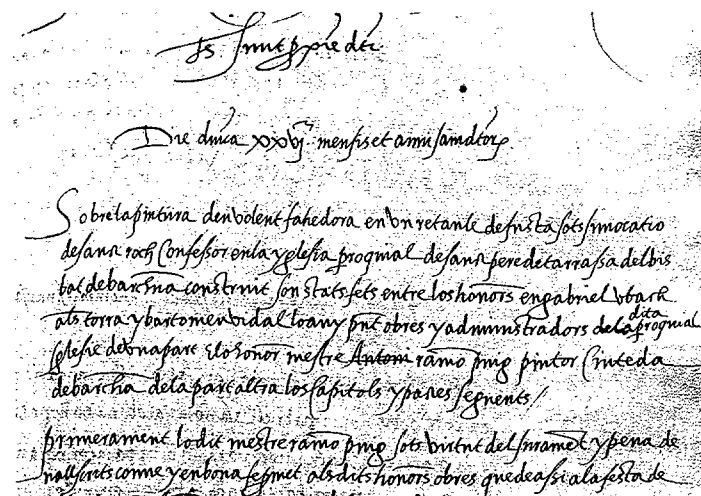 Js. Sunt p pxie dce
Die dnica xxvj mensis et anni samdtorp
Sobre la pintura den volent fahedora en vn retaule de fusta sots jnuocatio
de sanct roch Confessor en la yglesia proqmal de sanct pere de tarrassa del bis
bat de barchna construit son stats fets entre los honors en gabriel vbach
als torra y bartomeu vidal lo any pnt obres y administradors de la dita proqmal
sglesie de vna part E lo honor mestre Antoni ramo puig pintor Ciuteda
de barchna de la part altra los Capitols y pactes seguents //
primerament lo dit mestre ramo puig sots virtut del jurament y pena de
nall scrits conue y en bona fe pmet als dits honors obres que de assi a la festa de